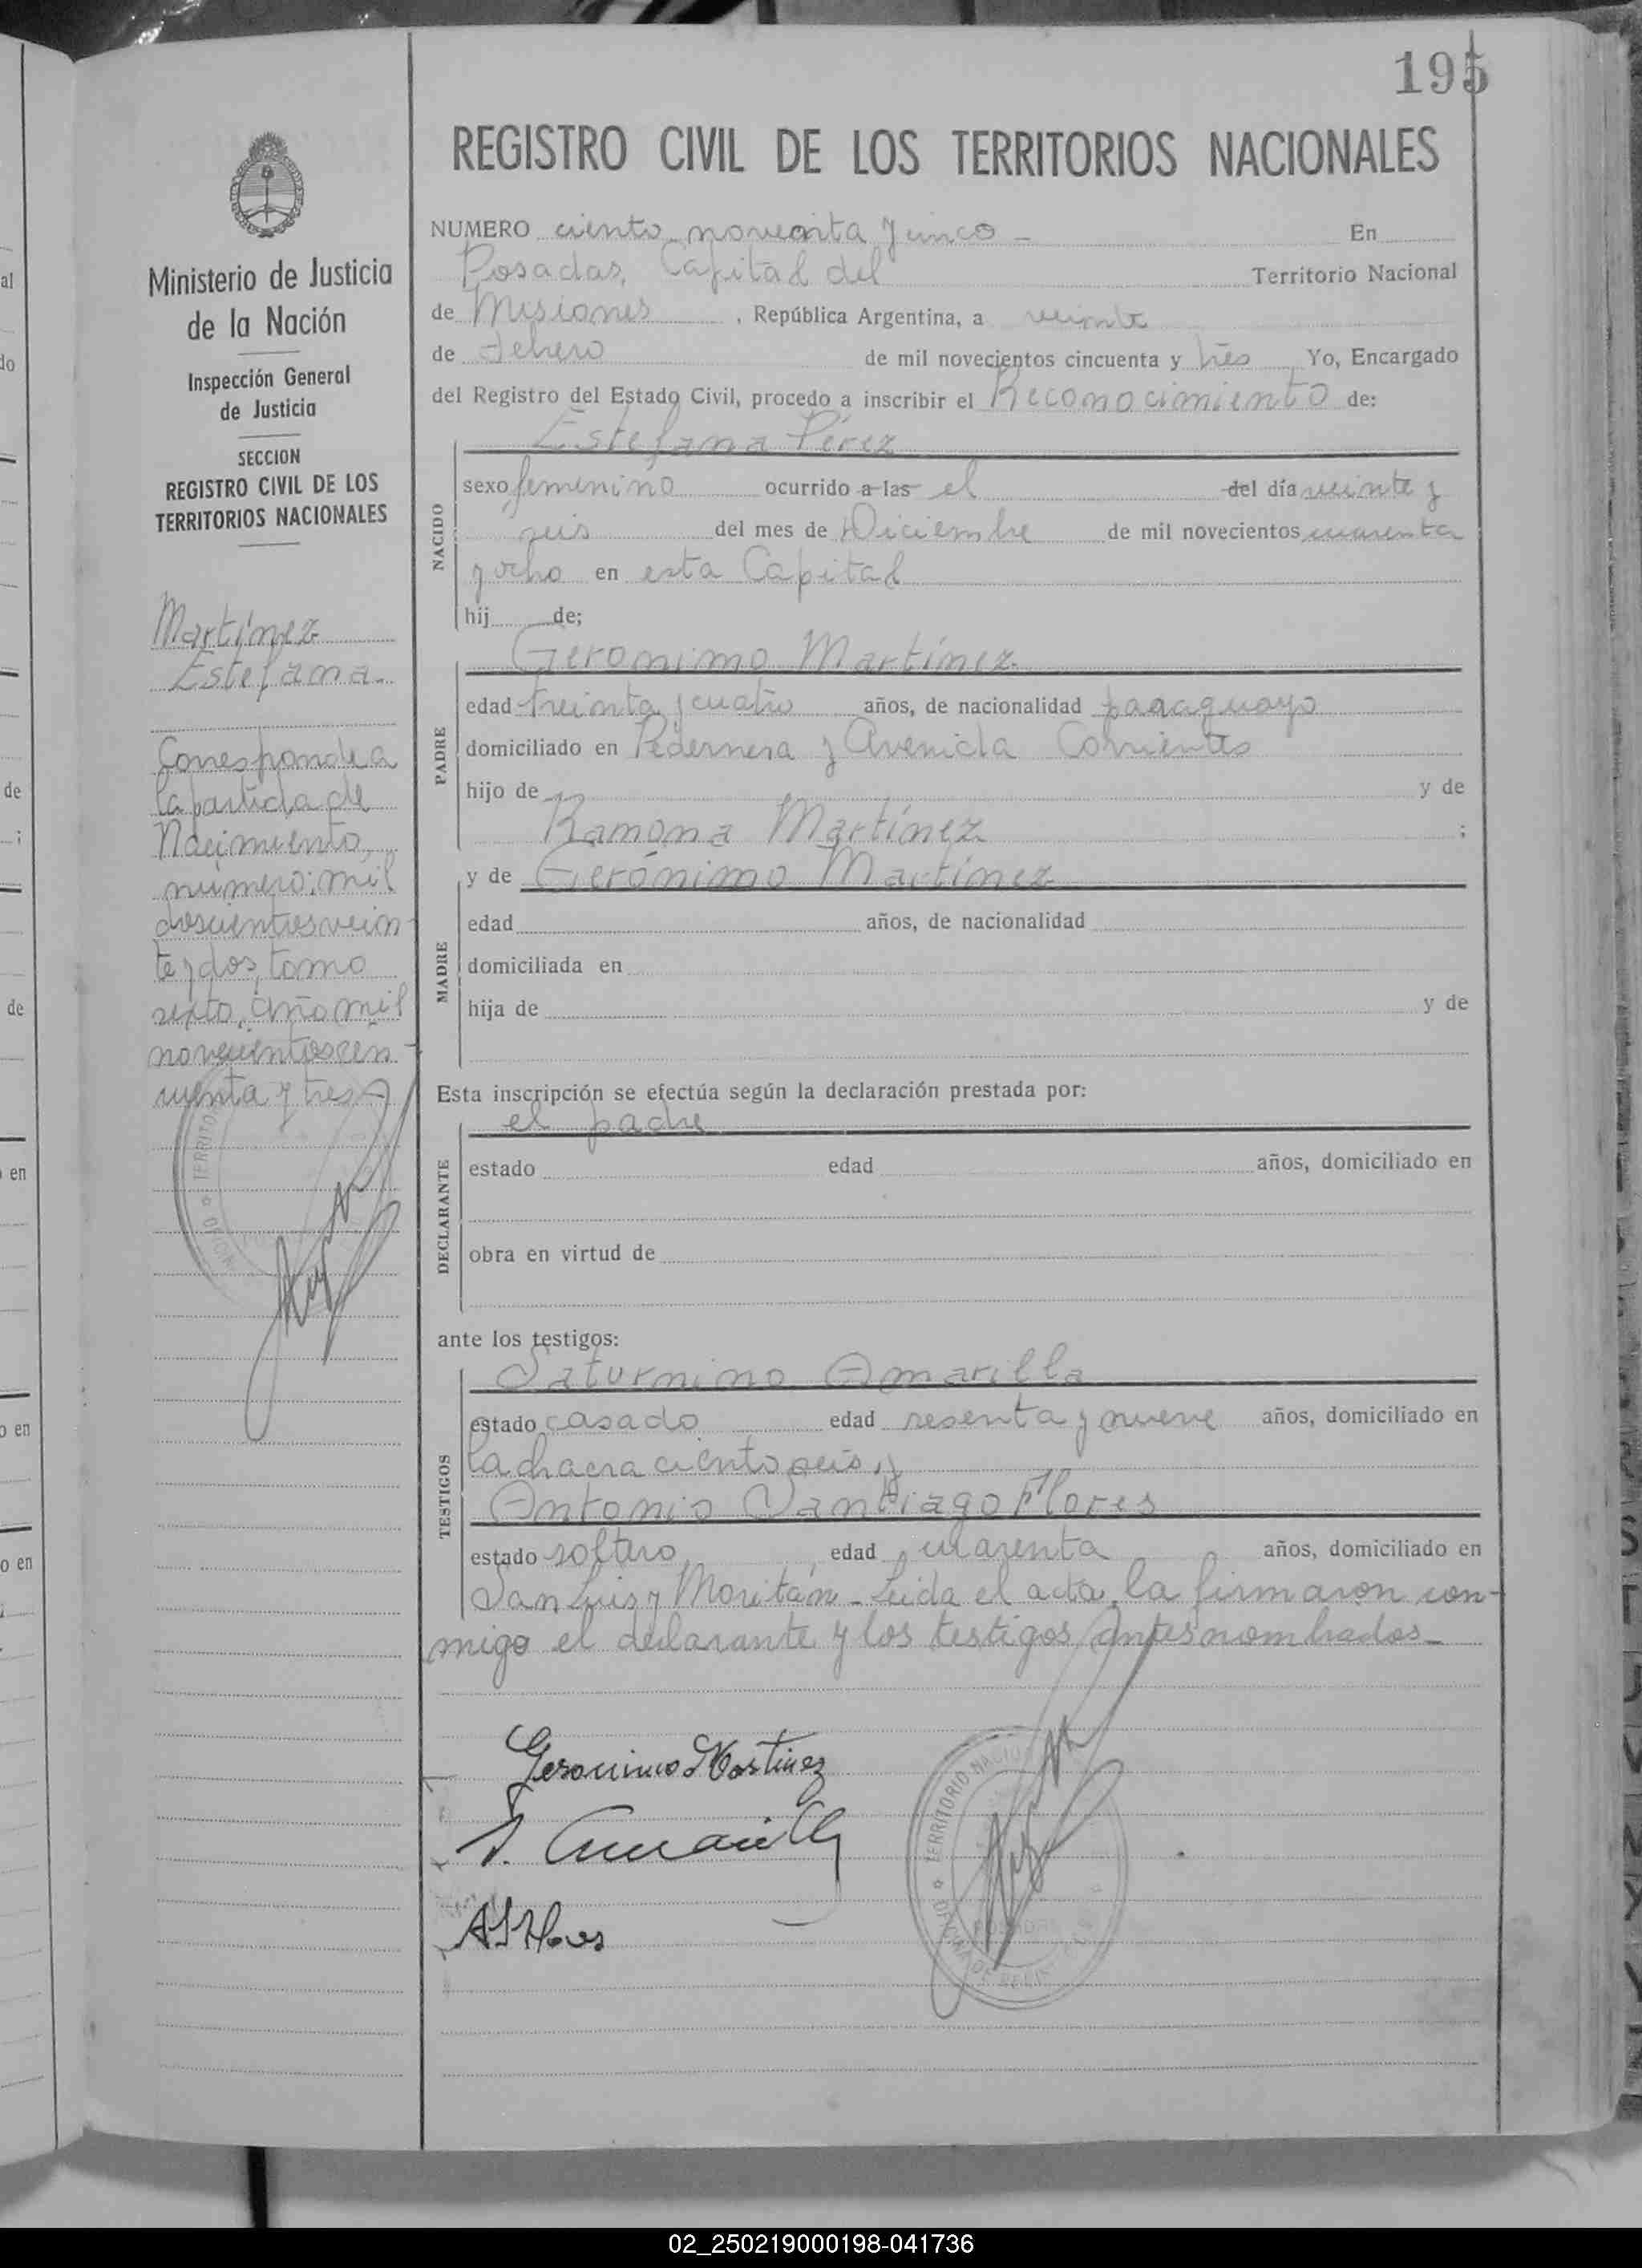 195
REGISTRO CIVIL DE LOS TERRITORIOS NACIONALES
Ministerio de Justicia
de la Nación
Inspección General
de Justicia
SECCION
REGISTRO CIVIL DE LOS
TERRITORIOS NACIONALES
Martínez
Estefana.
Corresponde a
la partida de
Nacimiento,
número: mil
doscientos vein-
te y dos, tomo
sexto, año mil
novecientos cin-
cuenta y tres
NUMERO ciento noventa y cinco - En
Posadas, Capital del Territorio Nacional
de Misiones, República Argentina, a veinte
de Febrero de mil novecientos cincuenta y tres Yo, Encargado
del Registro del Estado Civil, procedo a inscribir el Reconocimiento de:
Estefana Pérez
NACIDO
sexo femenino ocurrido a las el del día veinte y
seis del mes de Diciembre de mil novecientos cuarenta
y ocho en esta Capital
hij de;
Geronimo Martínez
PADRE
edad treinta y cuatro años, de nacionalidad paraguayo
domiciliado en Pedernera y Avenida Corrientes
hijo de y de
Ramona Martínez ;
y de Gerónimo Martínez
MADRE
edad años, de nacionalidad
domiciliada en
hija de y de
Esta inscripción se efectúa según la declaración prestada por:
el padre
DECLARANTE
estado edad años, domiciliado en
obra en virtud de
ante los testigos:
Saturnino Amarilla
TESTIGOS
estado casado edad sesenta y nueve años, domiciliado en
la chacra ciento seis, y
Antonio Santiago Flores
estado soltero, edad cuarenta años, domiciliado en
San Luis y Moritán - Leida el acta, la firmaron con-
migo el declarante y los testigos antes nombrados -
Geronimo Martinez
S. Amarilla
A S Flores
TERRITORIO NACIO
POSADAS
02_250219000198-041736